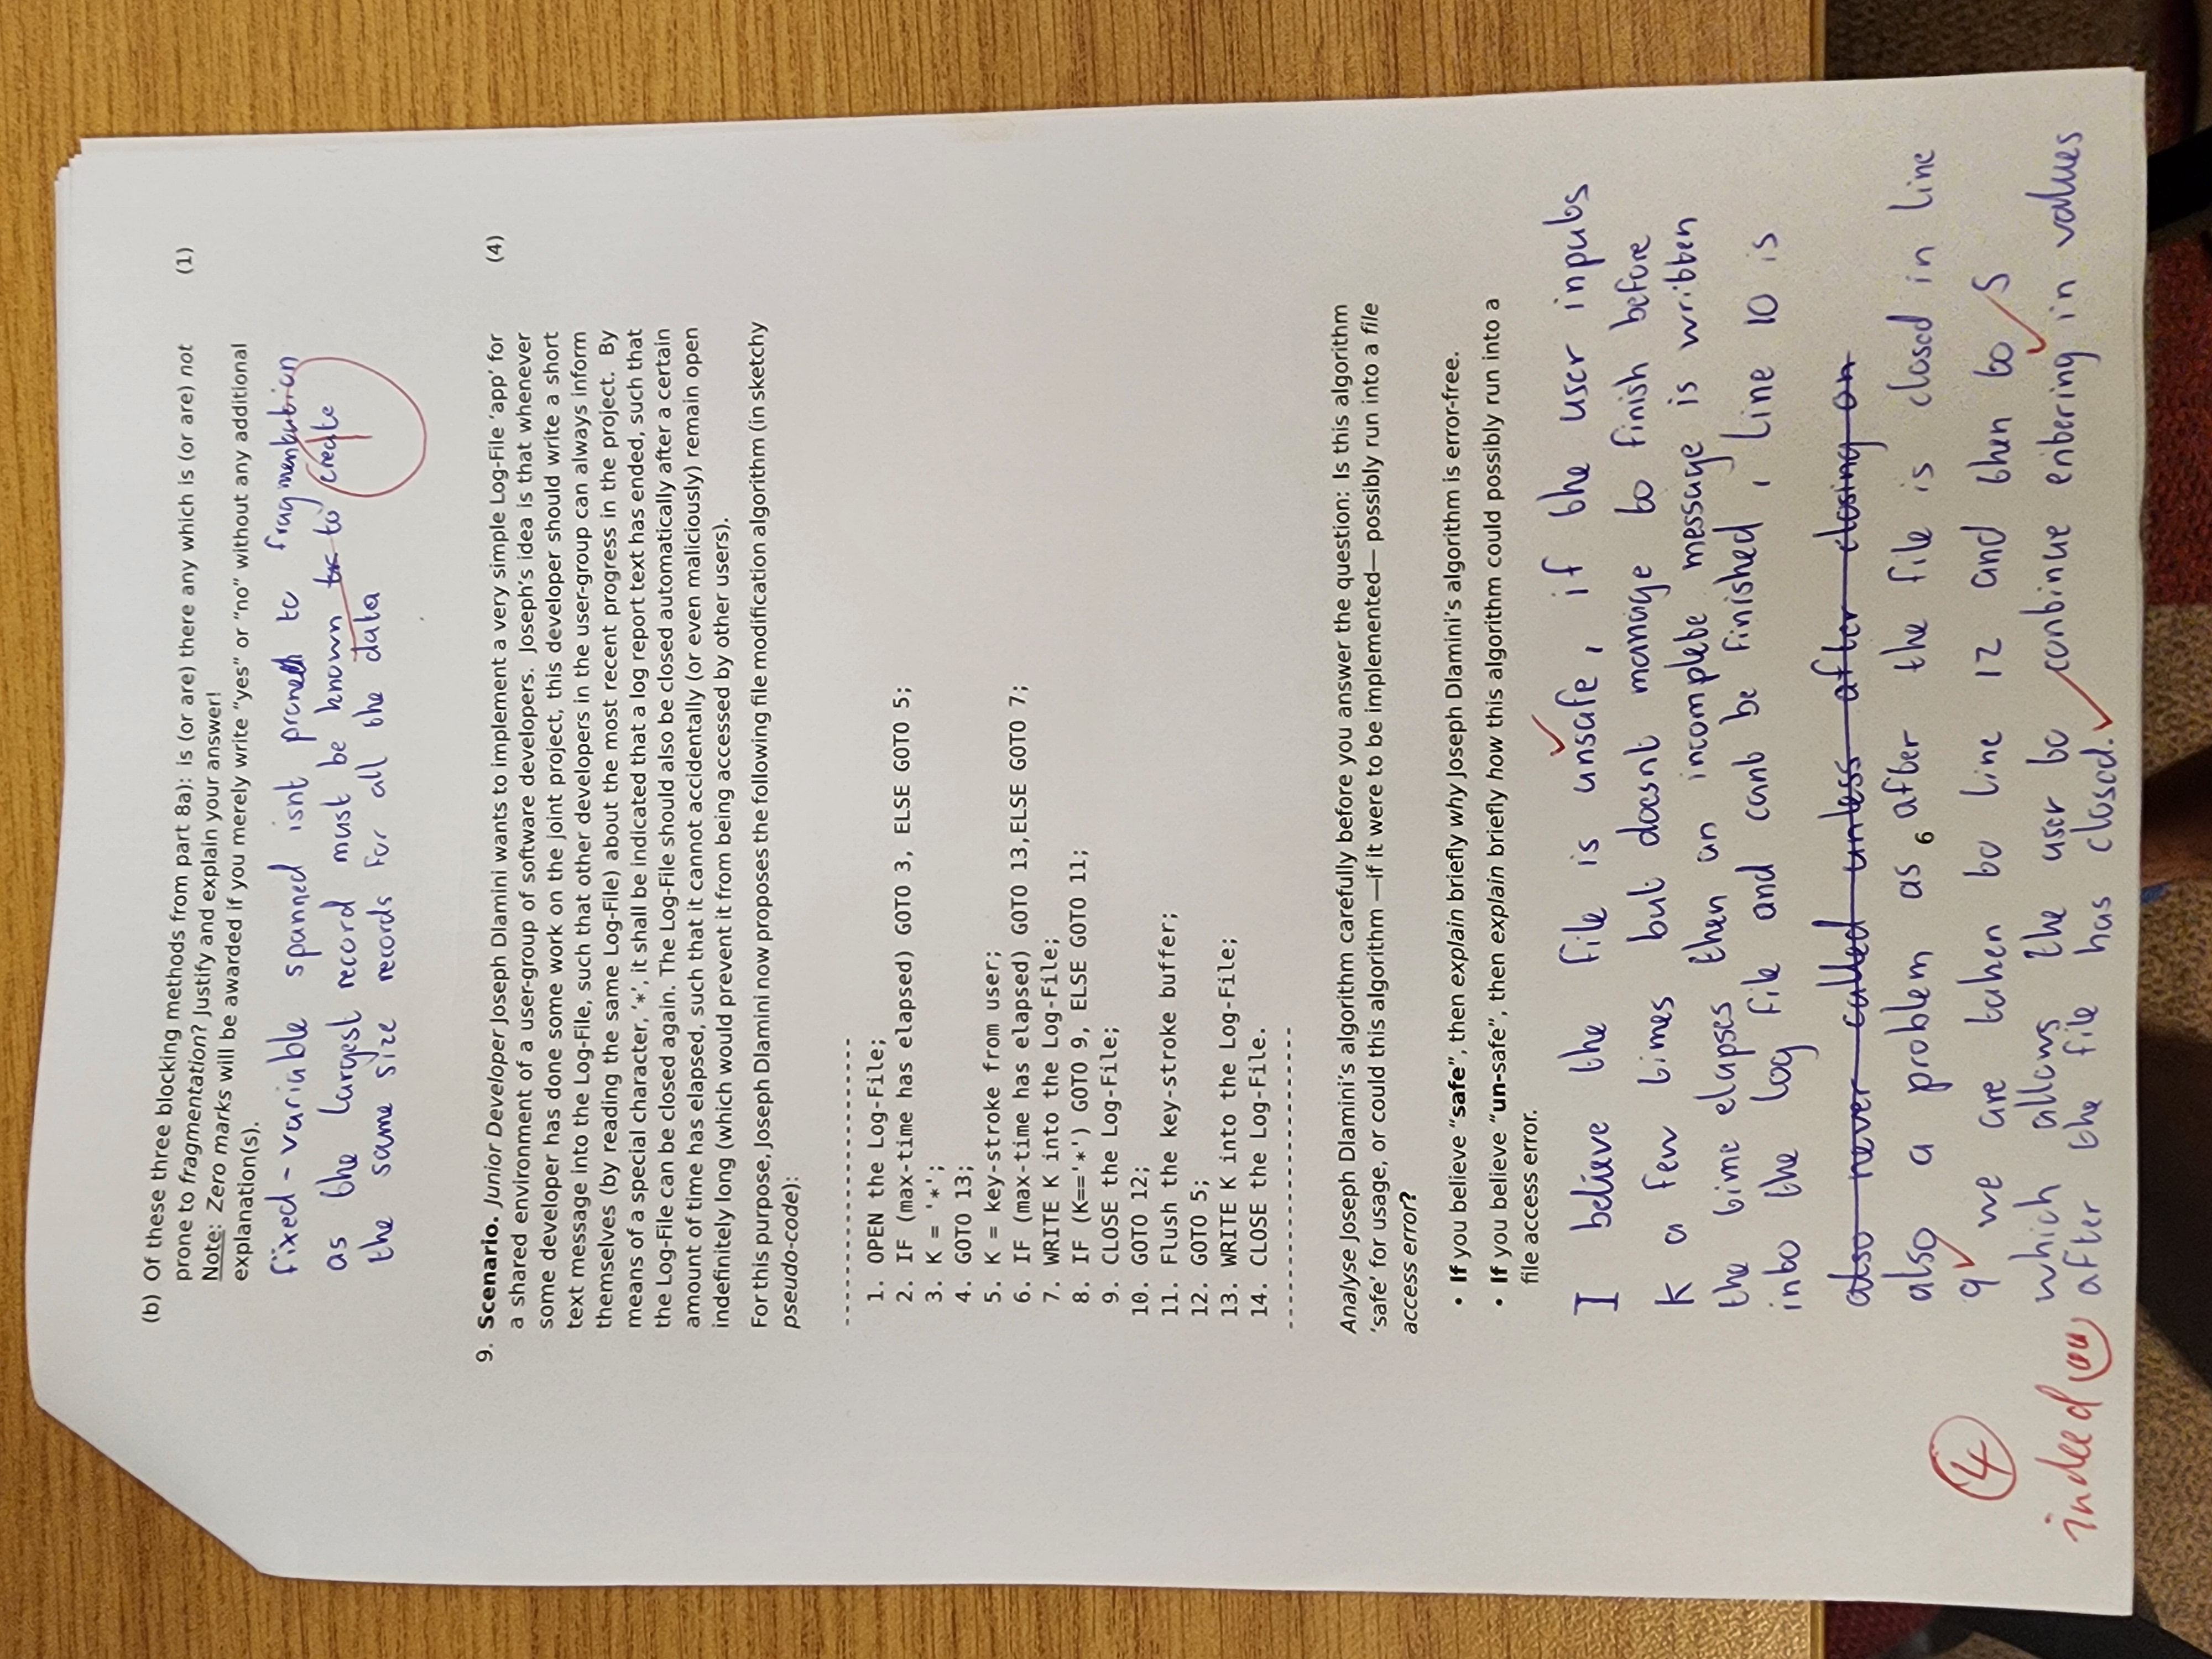 (b) Of these three blocking methods from part 8a): is (or are) there any which is (or are) not (1)
prone to fragmentation? Justify and explain your answer!
Note: Zero marks will be awarded if you merely write "yes" or "no" without any additional
explanation(s).
fixed-variable spanned isnt prone to fragmentation
as the largest record must be known to create
the same size records for all the data
9. Scenario. Junior Developer Joseph Dlamini wants to implement a very simple Log-File 'app' for (4)
a shared environment of a user-group of software developers. Joseph's idea is that whenever
some developer has done some work on the joint project, this developer should write a short
text message into the Log-File, such that other developers in the user-group can always inform
themselves (by reading the same Log-File) about the most recent progress in the project. By
means of a special character, '*', it shall be indicated that a log report text has ended, such that
the Log-File can be closed again. The Log-File should also be closed automatically after a certain
amount of time has elapsed, such that it cannot accidentally (or even maliciously) remain open
indefinitely long (which would prevent it from being accessed by other users).
For this purpose, Joseph Dlamini now proposes the following file modification algorithm (in sketchy
pseudo-code):
-----------------------
1. OPEN the Log-File;
2. IF (max-time has elapsed) GOTO 3, ELSE GOTO 5;
3. K = '*';
4. GOTO 13;
5. K = key-stroke from user;
6. IF (max-time has elapsed) GOTO 13,ELSE GOTO 7;
7. WRITE K into the Log-File;
8. IF (K=='*') GOTO 9, ELSE GOTO 11;
9. CLOSE the Log-File;
10. GOTO 12;
11. Flush the key-stroke buffer;
12. GOTO 5;
13. WRITE K into the Log-File;
14. CLOSE the Log-File.
------------------------
Analyse Joseph Dlamini's algorithm carefully before you answer the question: Is this algorithm
'safe' for usage, or could this algorithm —if it were to be implemented— possibly run into a file
access error?
• If you believe "safe", then explain briefly why Joseph Dlamini's algorithm is error-free.
• If you believe "un-safe", then explain briefly how this algorithm could possibly run into a
file access error.
I believe the file is unsafe, if the user inputs
K a few times but doesnt manage to finish before
the time elapses then an incomplete message is written
into the log file and cant be finished, line 10 is
also never called unless after closing on
also a problem as after the file is closed in line
6
9 we are taken to line 12 and then to 5
which allows the user to continue entering in values
after the file has closed.
4
indeed